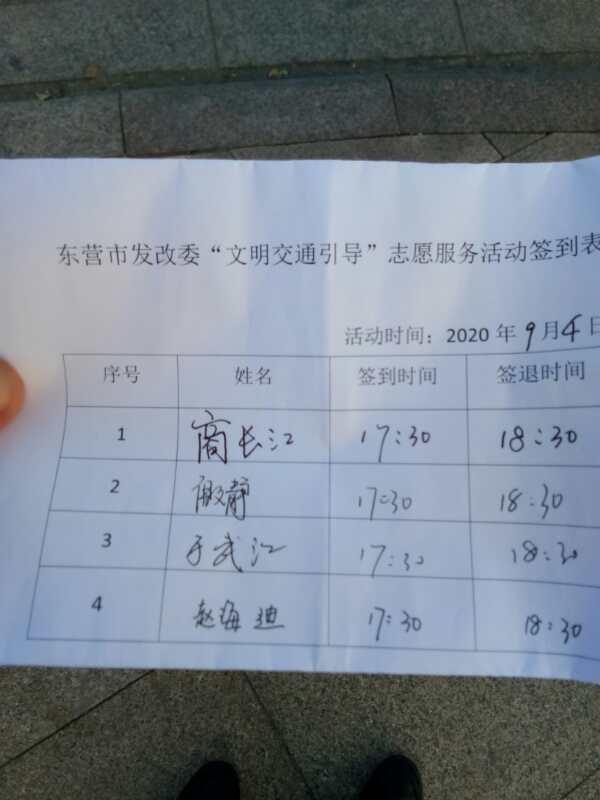 东营市发改委“文明交通引导”志愿服务活动签到表
活动时间：2020 年 9 月 4 日
序号 姓名 签到时间 签退时间
1 商长江 17:30 18:30
2 静 17:30 18:30
3 于武江 17:30 18:30
4 赵海迪 17:30 18:30